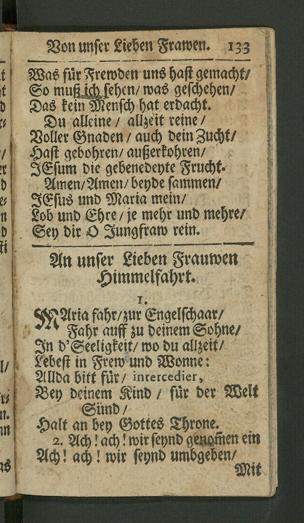 Von unser Lieben Frawen. 133
Was für Frewden uns hast gemacht/
So muß ich sehen/ was geschehen/
Das kein Mensch hat erdacht.
Du alleine/ allzeit reine/
Voller Gnaden/ auch dein Zucht/
Hast gebohren/ außerkohren/
JEsum die gebenedeyte Frucht.
Amen/ Amen/ beyde sammen/
JEsus und Maria mein/
Lob und Ehre/ je mehr und mehre/
Sey dir O Jungfraw rein.
An unser Lieben Frauwen
Himmelfahrt.
1.
MAria fahr/ zur Engelschaar/
Fahr auff zu deinem Sohne/
In d'Seeligkeit/ wo du allzeit/
Lebest in Frew und Wonne:
Allda bitt für/ intercedier,
Bey deinem Kind/ für der Welt
Sünd/
Halt an bey Gottes Throne.
2. Ach! ach! wir seynd genom̃en ein
Ach! ach! wir seynd umbgeben/
Mit